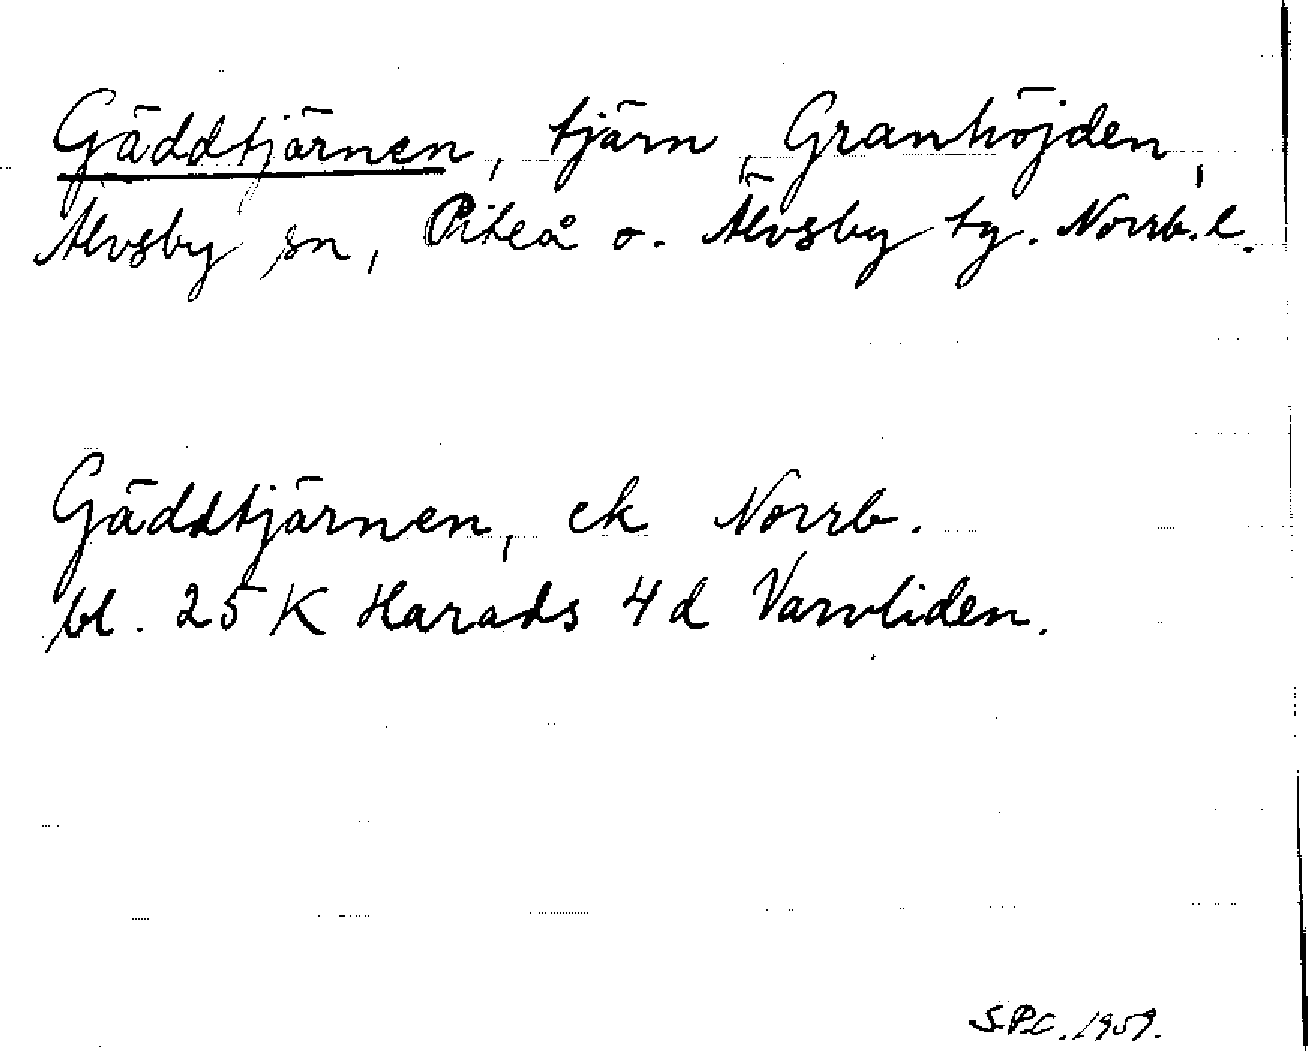 Gäddtjärnen, tjärn, Granhöjden,
Älvsby sn, Piteå o. Älvsby tg. Norrb. l.
Gäddtjärnen, ek Norrb.
bl. 25 K Harads 4 d Varvliden.
S.P.C. 1959.